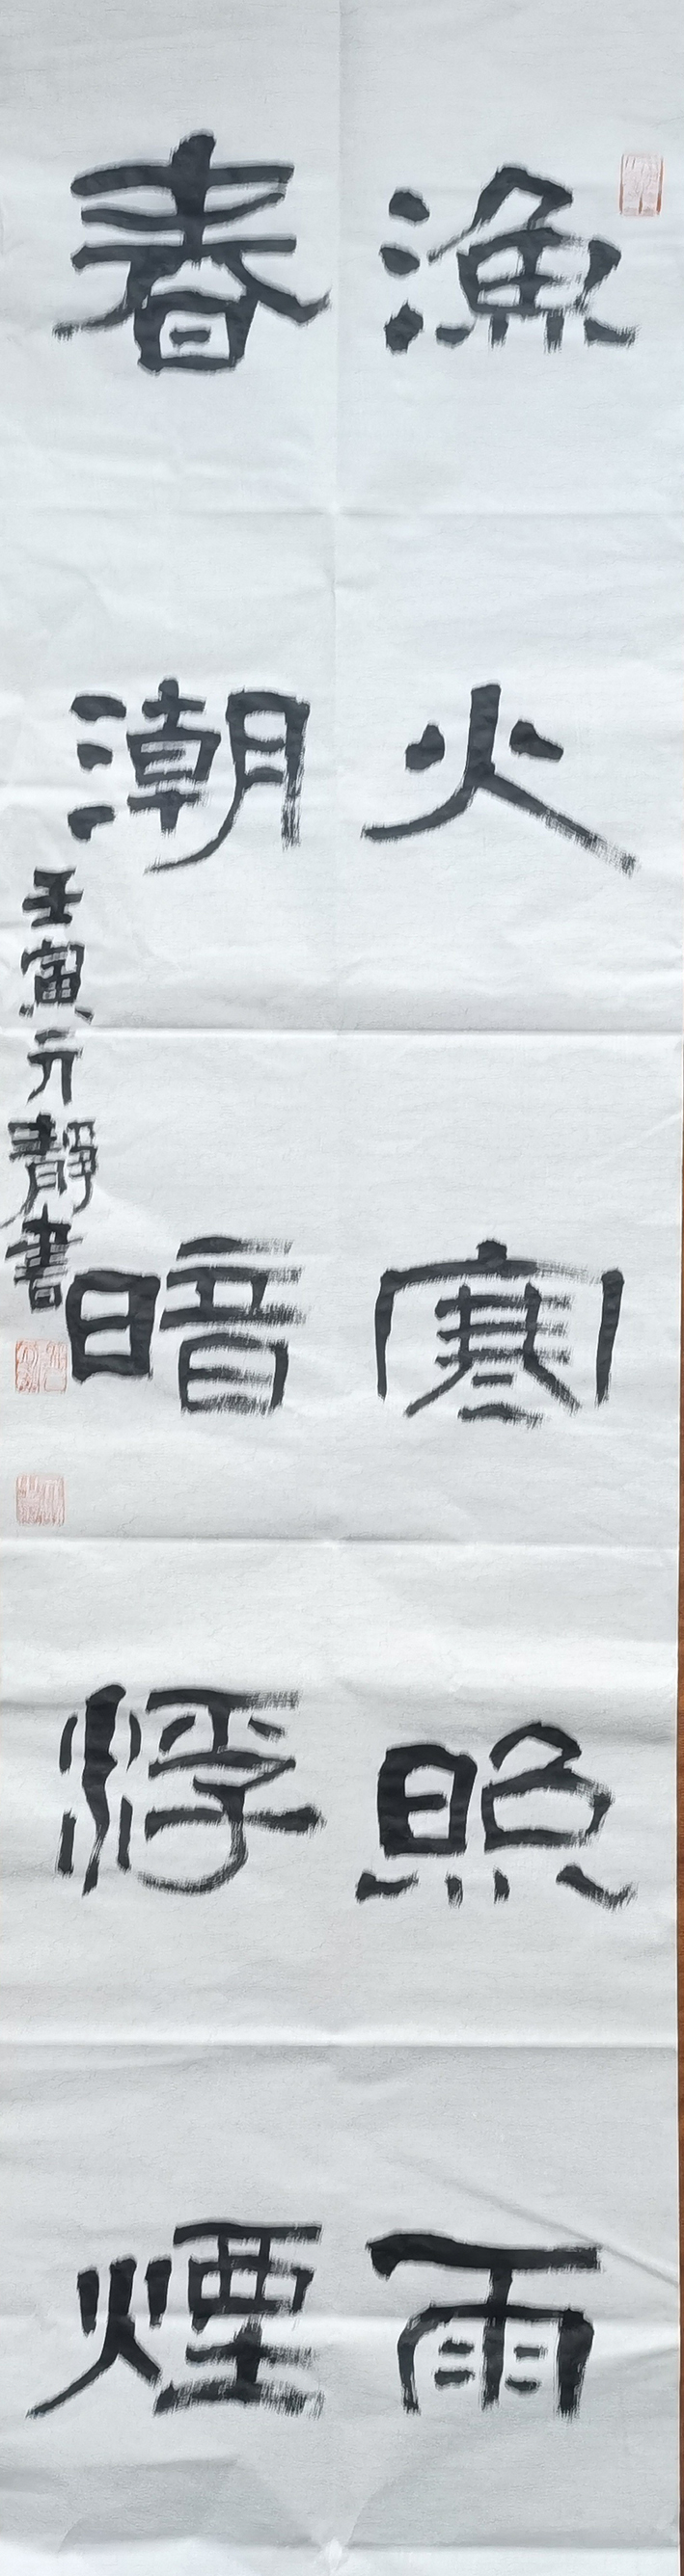 漁火寒照雨
春潮暗浮煙
壬寅元靜書